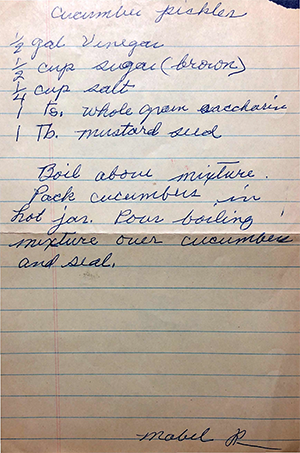 Cucumber pickles
1/2 gal Vinegar
1/2 cup sugar (brown)
1/4 cup salt
1 Ts. whole grain saccharin
1 Tb. mustard seed
Boil above mixture.
Pack cucumbers in
hot jar. Pour boiling
mixture over cucumbers
and seal.
Mabel R